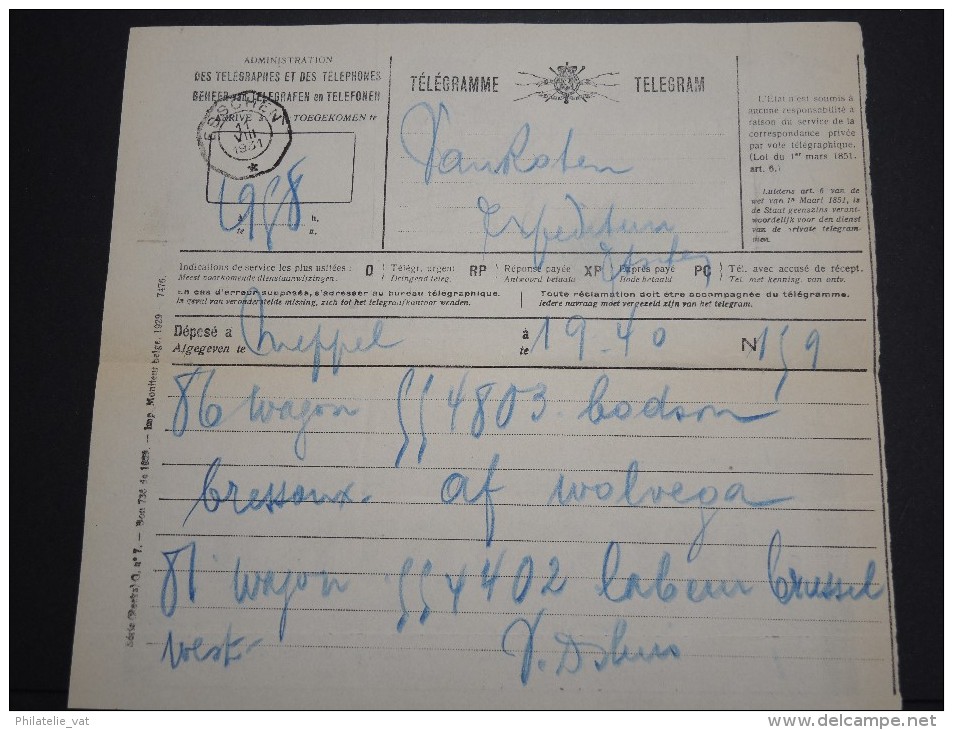 ADMINISTRATION
DES TÉLÉGRAPHES ET DES TÉLÉPHONES
BEHEER van TELEGRAFEN en TELEFONEN
ARRIVÉ à TOEGEKOMEN te
ESSCHEN
11
VIII
1931
*
à h.
te u.
TÉLÉGRAMME TELEGRAM
L'État n'est soumis à
aucune responsabilité à
raison du service de la
correspondance privée
par voie télégraphique.
(Loi du 1er mars 1851.
art. 6.)
Luidens art. 6 van de
wet van 1n Maart 1851, is
de Staat geenszins verant-
woordelijk voor den dienst
van de private telegram-
men.
Indications de service les plus usitées : D Télégr. urgent RP Réponse payée XP Exprès payé PC Tél. avec accusé de récept.
Meest voorkomende dienstaanwijzingen: Dringend teleg. Antwoord betaald Bode betaald Tel. met kenning. van ontv.
En cas d'erreur supposée, s'adresser au bureau télégraphique. Toute réclamation doit être accompagnée du télégramme.
In geval van veronderstelde missing, zich tot het telegraafkantoor wenden. Iedere navraag moet vergezeld zijn van het telegram.
Déposé à Meppel à 19-40 N 159
Afgegeven te te
86 wagon 4803 bodson
bressoux - af wolvega
81 wagon 4402 labeur brussel
west -
Imp. Moniteur belge. 1929 7476.
Philatelie_vat
www.delcampe.net